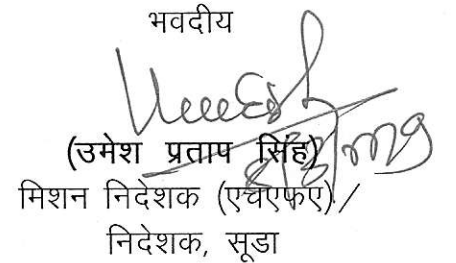 भवदीय
(उमेश प्रताप सिंह)
मिशन निदेशक (एचएफए)/
निदेशक, सूडा